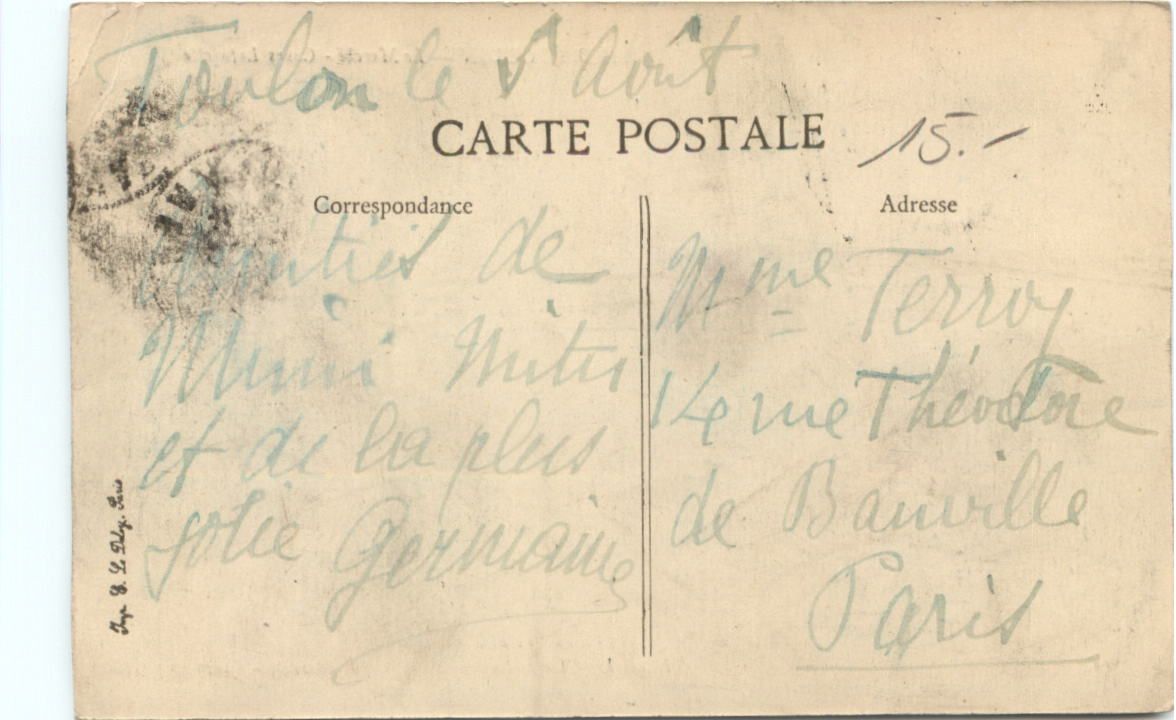 Toulon le 5 Août
CARTE POSTALE
15.-
Correspondance
Adresse
Amitiés de
Mimi
et de la plus
jolie Germaine
Mme Terroy
14 rue Théodore
de Banville
Paris
Imp. E. Le Deley. Paris